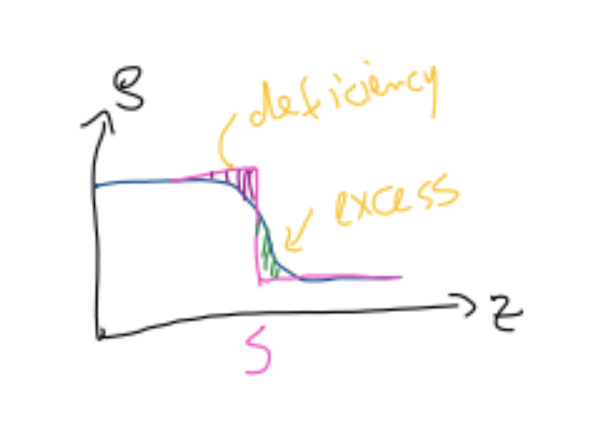 ρ
deficiency
excess
z
S